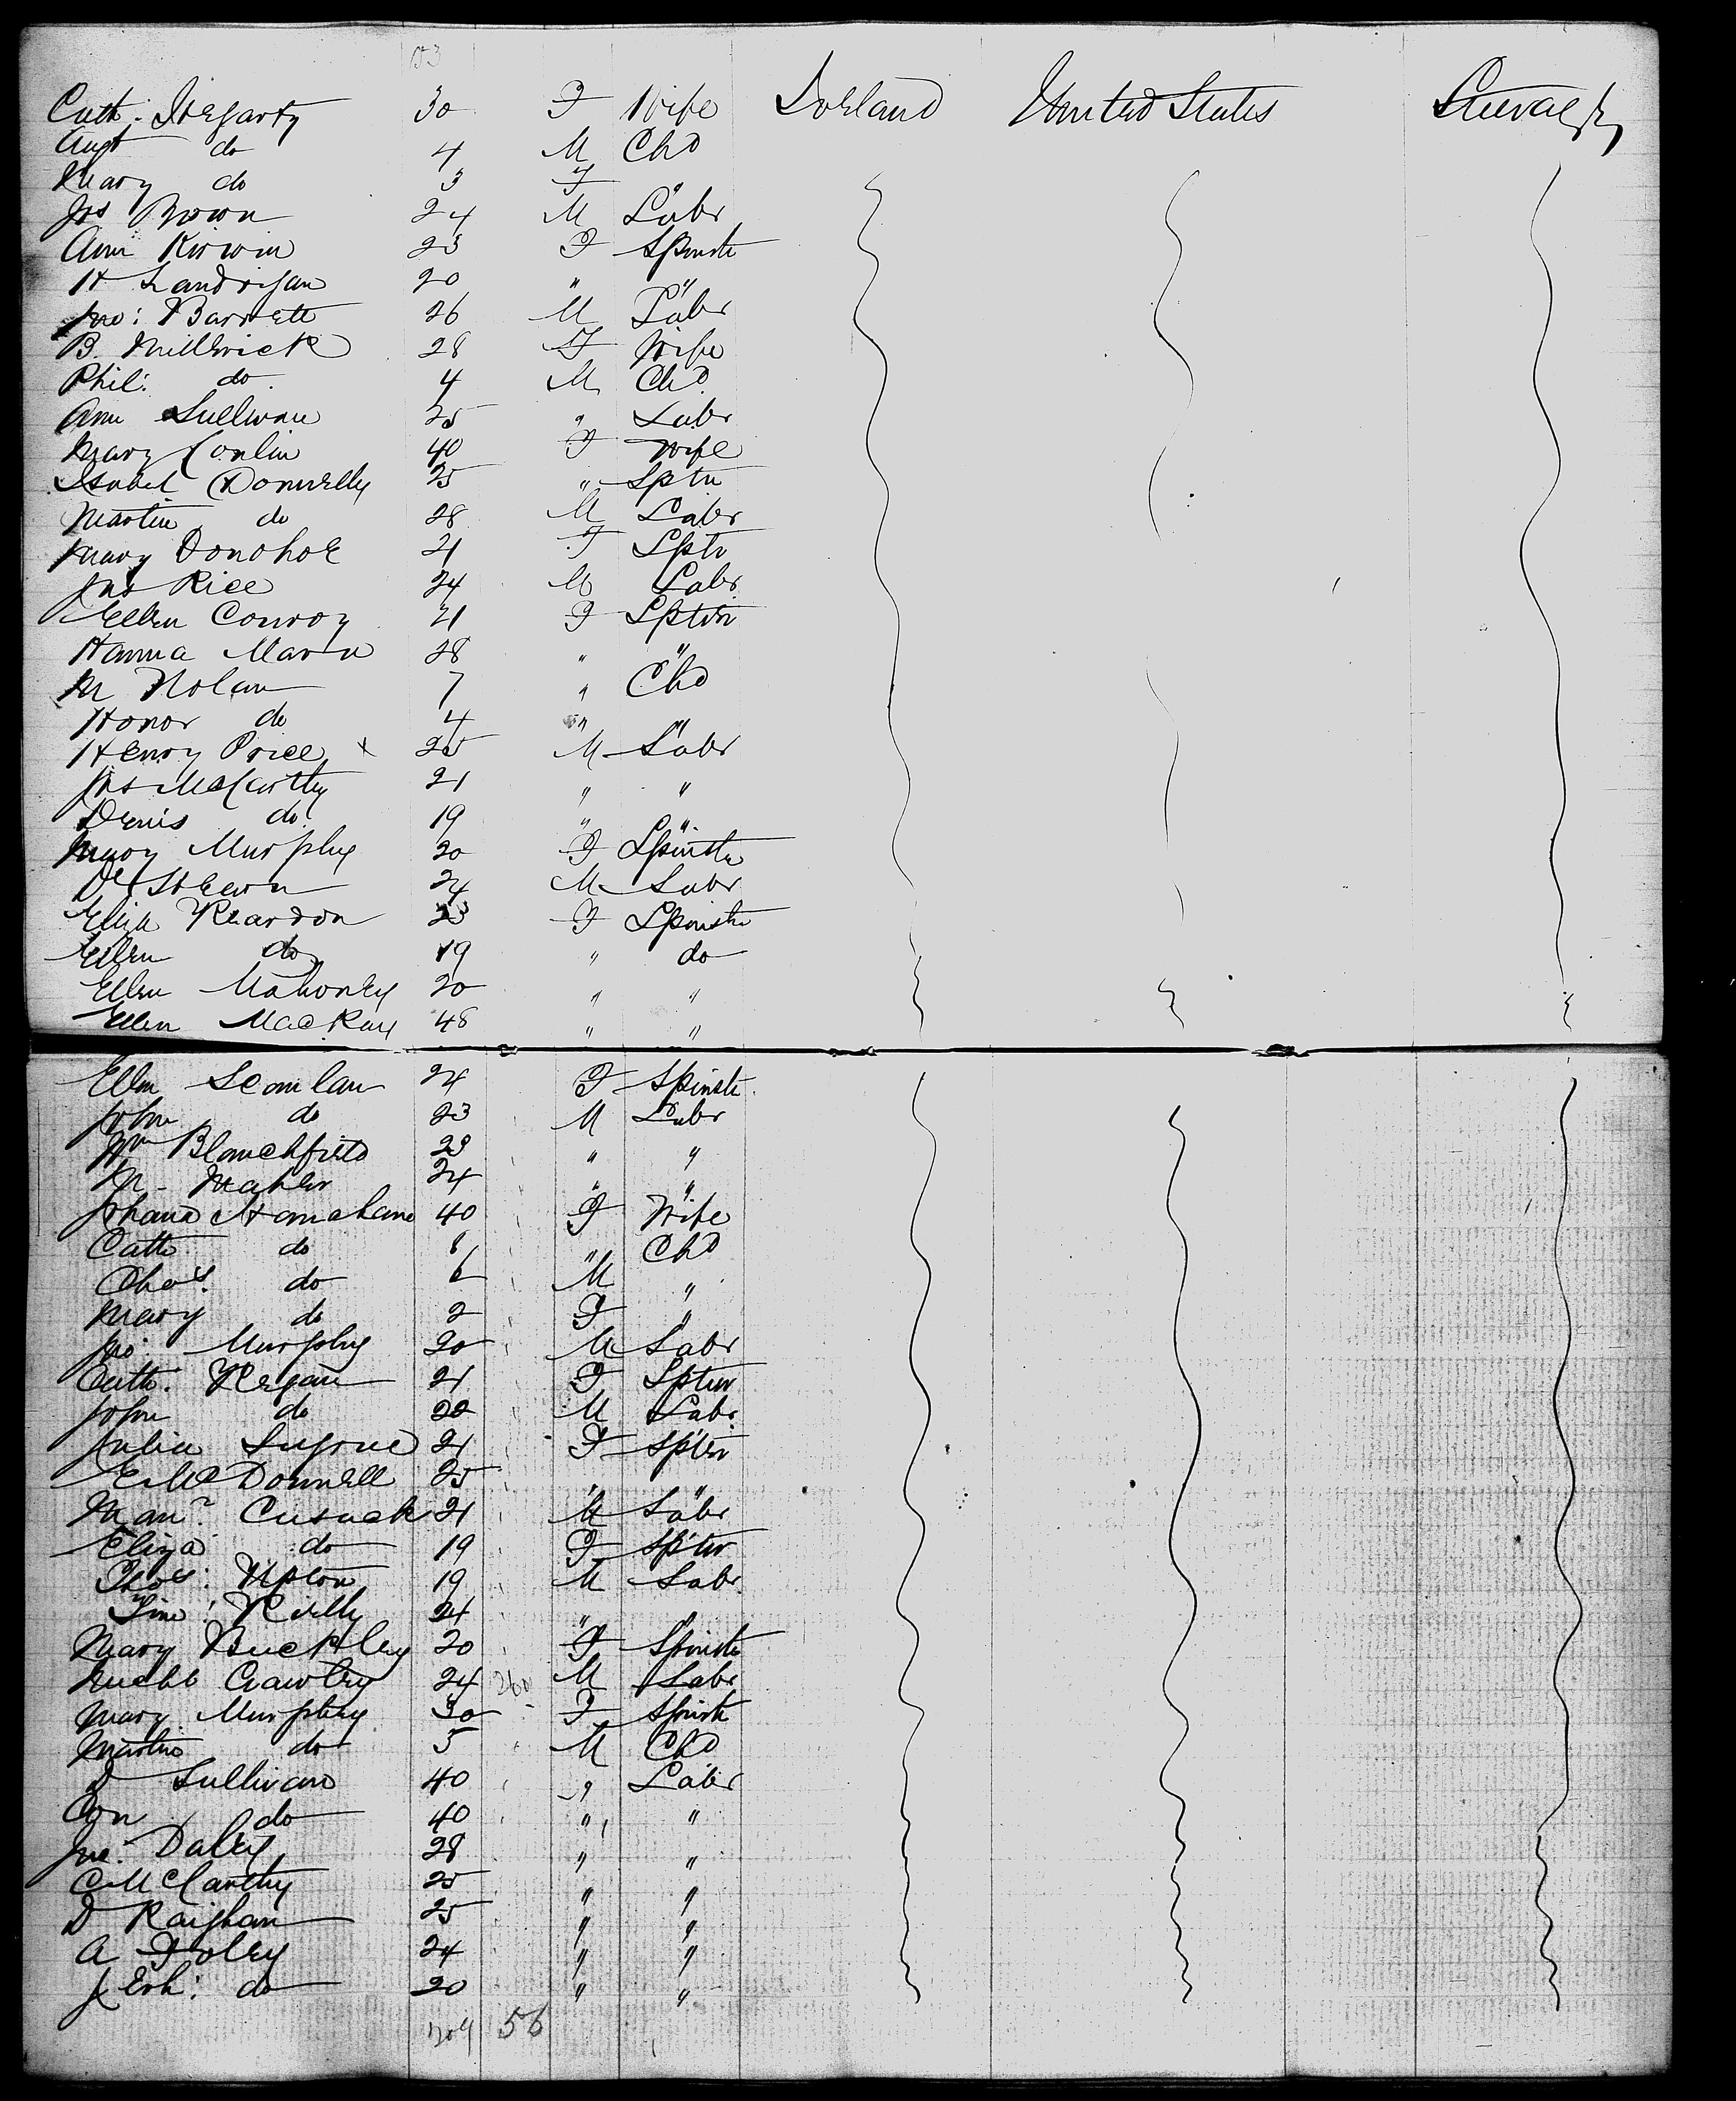 153
Cath: Hegarty 30 F Wife Ireland United States Steerage
Augt do 4 M Chd
Mary do 3 F "
Jas Brown 24 M Labr
Ann Kirwin 23 F Spinstr
H Landrigan 20 " "
Jno: Barrett 26 M Labr
B. Millerick 28 F Wife
Phil: do 4 M Chd
Ann Sullivan 25 " Labr
Mary Conlin 40 F Wife
Isabel Donnelly 25 " Sptr
Martin do 28 M Labr
Mary Donohoe 21 F Sptr
Jas Rice 24 M Labr
Ellen Conroy 21 F Spstr
Hanna Mara 28 " "
M Nolan 7 " Chd
Honor do 4 " "
Henry Price x 25 M Labr
Jas McCarthy 21 " "
Denis do 19 " "
Mary Murphy 20 F Spinstr
Ahearn 24 M Labr
Eliza Reardon 23 F Spinstr
Ellen do 19 " do
Ellen Mahoney 20 " "
Ellen MacKay 48 " "
Ellen Scanlan 24 F Spinstr
John do 23 M Labr
Wm Blanchfield 23 " "
M. Maher 24 " "
Johana Hanrahan 40 F Wife
Cath do 8 " Chd
Chas. do 6 M "
Mary do 2 F "
Jno: Murphy 20 M Labr
Cath. Regan 21 F Spter
John do 22 M Labr
Julia Sugrue 21 F Spter
E. McDonnell 25 " "
Cusack 21 M Labr
Eliza do 19 F Spter
Thos: Upton 19 M Labr
Tim: Reilly 24 " "
Mary Buckley 20 F Spinstr
Michl Crawley 24 M Labr
Mary Murphy 30 F Spinstr
Martin do 5 M Chd
D Sullivan 40 " Labr
Con do 40 " "
Jno: Daley 28 " "
C McCarthy 25 " "
D Kaighan 25 " "
A Foley 24 " "
Jerh: do 20 " "
56